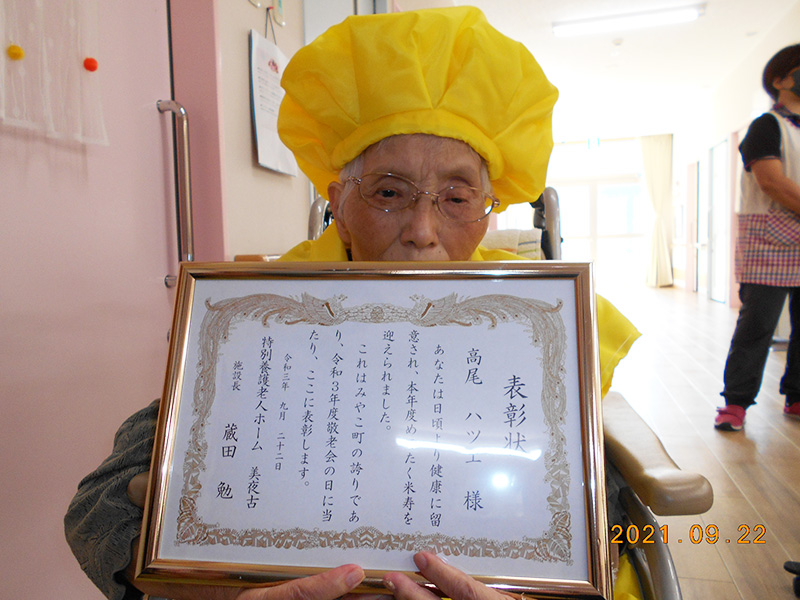 表彰状
高尾 ハツエ 様
あなたは日頃より健康に留
意され、本年度めでたく米寿を
迎えられました。
これはみやこ町の誇りであ
り、令和3年度敬老会の日に当
たり、ここに表彰します。
令和三年 九月 二十二日
特別養護老人ホーム 美夜古
施設長 蔵田 勉
2021.09.22